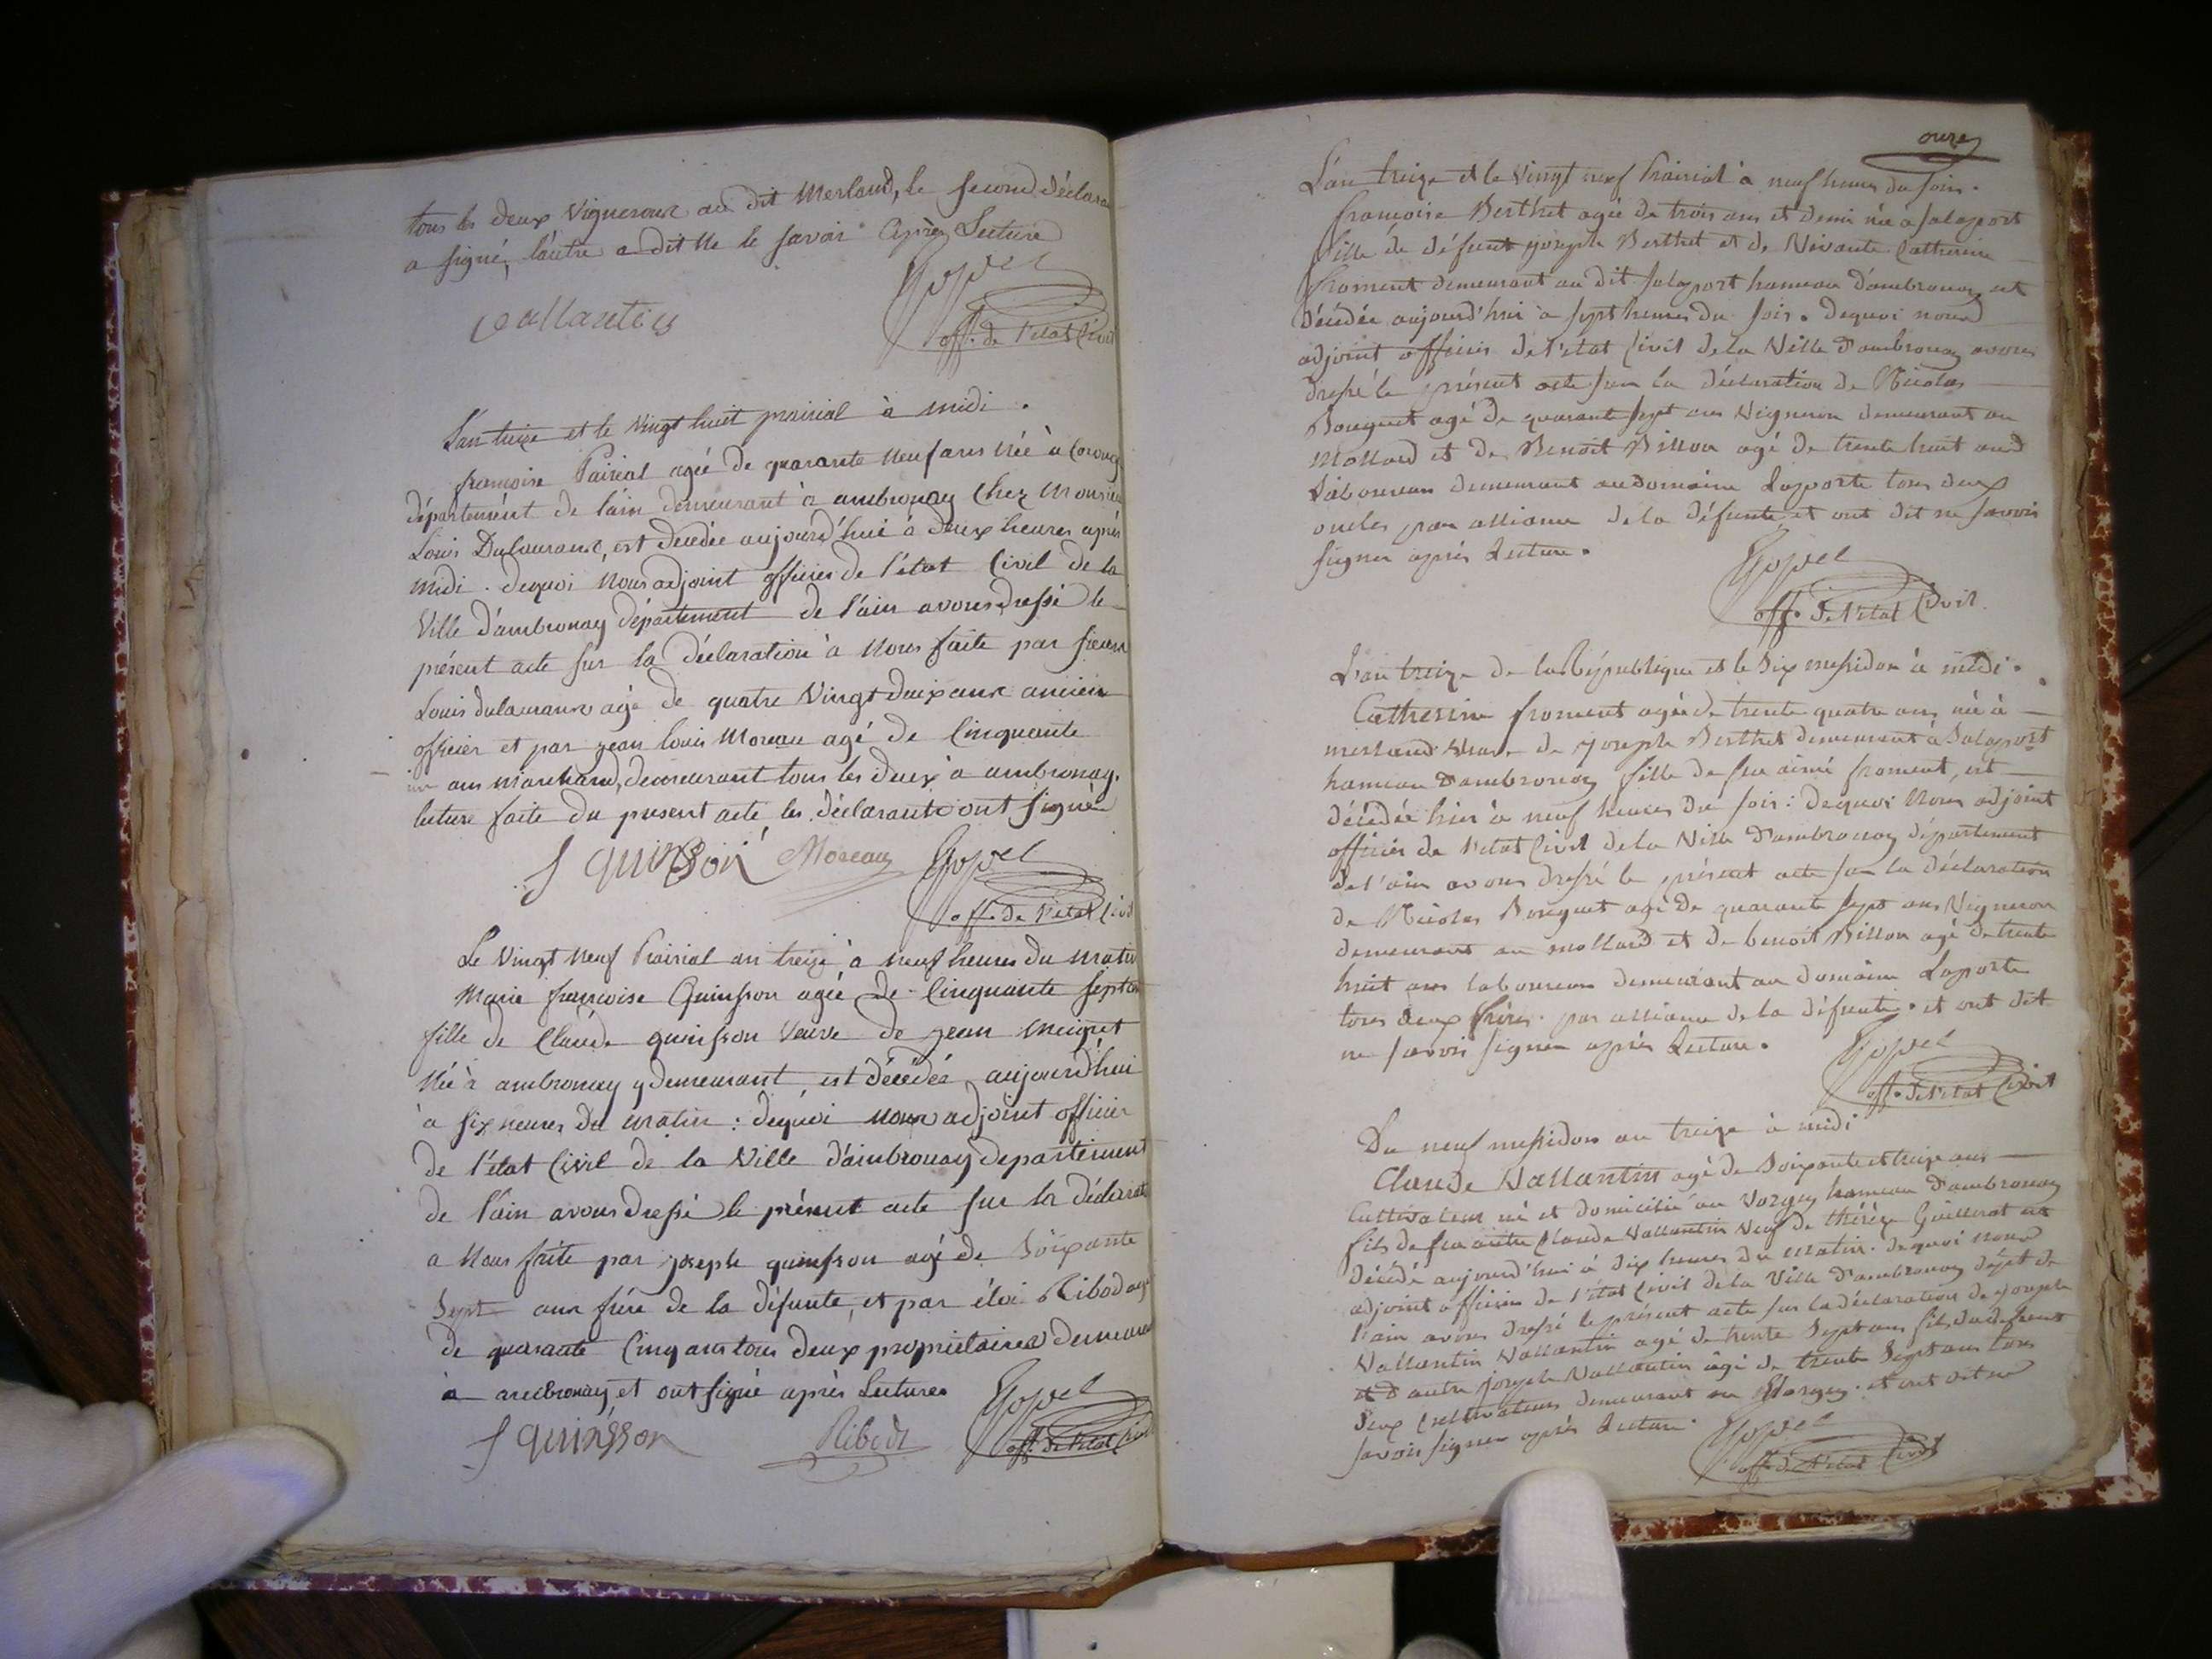 tous les deux Vignerons au dit Merland, le second déclara
a signé, l'autre a dit Ne le savoir Après Lecture
vallantin
Goppel
off. de l'etat Civil
L'an treize et le Vingt huit prairial à midi.
francoise Pairial agée de quarante Neuf ans Née à
département de l'ain demeurant à ambronay Chez Monsieu
Louis Dulaurans, est décédée aujourd'hui à deux heures après
midi. dequoi Nous adjoint officier de l'état Civil de la
Ville d'ambronay département de l'ain avons dressé le
présent acte sur la déclaration à Nous faite par sieur
Louis dulaurans agé de quatre Vingt deux ans ancien
officier et par jean louis Moreau agé de Cinquante
ans marchand, demeurant tous les deux à ambronay.
lecture faite du present acte les déclarants ont signé
J quinson Moreau Goppel
off. de l'etat Civil
Le Vingt Neuf Prairial an treize à neuf heures du matin
Marie francoise Quinsson agée de Cinquante sept an
fille de Claude quinsson Veuve de jean
Née à ambronay y demeurant, est décédée aujourd'hui
à six heures du matin : dequoi nous adjoint officier
de l'état Civil de la Ville d'ambronay département
de l'ain avons dressé le présent acte sur la déclarat
a Nous faite par joseph quinsson agé de Soixante
Sept ans frére de la défunte, et par éloi Ribod agé
de quarante Cinq ans tous deux proprietaires demeura
à ambronay, et ont signé après Lecture
J quinsson Ribod Goppel
off. de l'etat Civil
onze
L'an treize et le Vingt neuf Prairial à neuf heures du soir.
françoise Berthet agée de trois ans et demi née à Salaport
fille de défunt joseph Berthet et de Vivante Catherine
froment demeurant au dit Salaport hameau d'ambronay est
décédée aujourd'hui à sept heures du soir. dequoi nous
adjoint officier de l'etat Civil de la Ville d'ambronay avons
dressé le présent acte sur la déclaration de Nicolas
Bouguet agé de quarante sept ans Vigneron demeurant au
Mollard et de Benoit Billon agé de trente huit ans
Laboureur demeurant au domaine Laporte tous deux
oncles par alliance de la défunte et ont dit ne savoir
signer après Lecture.
Goppel
off. de l'etat Civil
L'an treize de la République et le Six messidor à midi.
Catherine froment agée de trente quatre ans née à
merland de joseph Berthet demeurant a Salaport
hameau d'ambronay fille de feu aimé froment, est
décédée hier à neuf heures du soir : dequoi Nous adjoint
officier de l'etat Civil de la Ville d'ambronay département
de l'ain avons dressé le présent acte sur la déclaration
de Nicolas Bouguet agé de quarante sept ans Vigneron
demeurant au mollard et de benoit Billon agé de trente
huit ans laboureur demeurant au domaine Laporte
tous deux frères par alliance de la défunte. et ont dit
ne savoir signer après Lecture.
Goppel
off. de l'etat Civil
Du neuf messidor an treize à midi
Claude Vallantin agé de Soixante et treize ans
Cultivateur né et domicilié au hameau d'ambronay
fils de feu autre Claude Vallantin Veuf de thérèze Guillerat est
décédé aujourd'hui à dix heures du matin. dequoi nous
adjoint officier de l'état Civil de la Ville d'ambronay dépt de
l'ain avons dressé le présent acte sur la déclaration de joseph
Vallantin Vallantin agé de trente Sept ans fils du défunt
et d'autre joseph Vallantin âgé de trente Sept ans tous
deux Cultivateurs demeurant au et ont dit ne
savoir signer après Lecture.
Goppel
off. de l'etat Civil